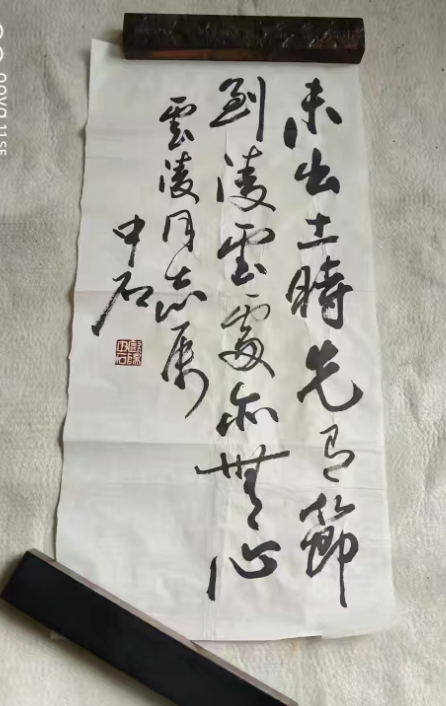 未出土時先有節
到陵雲處亦無心
雲陵同志屬
中石